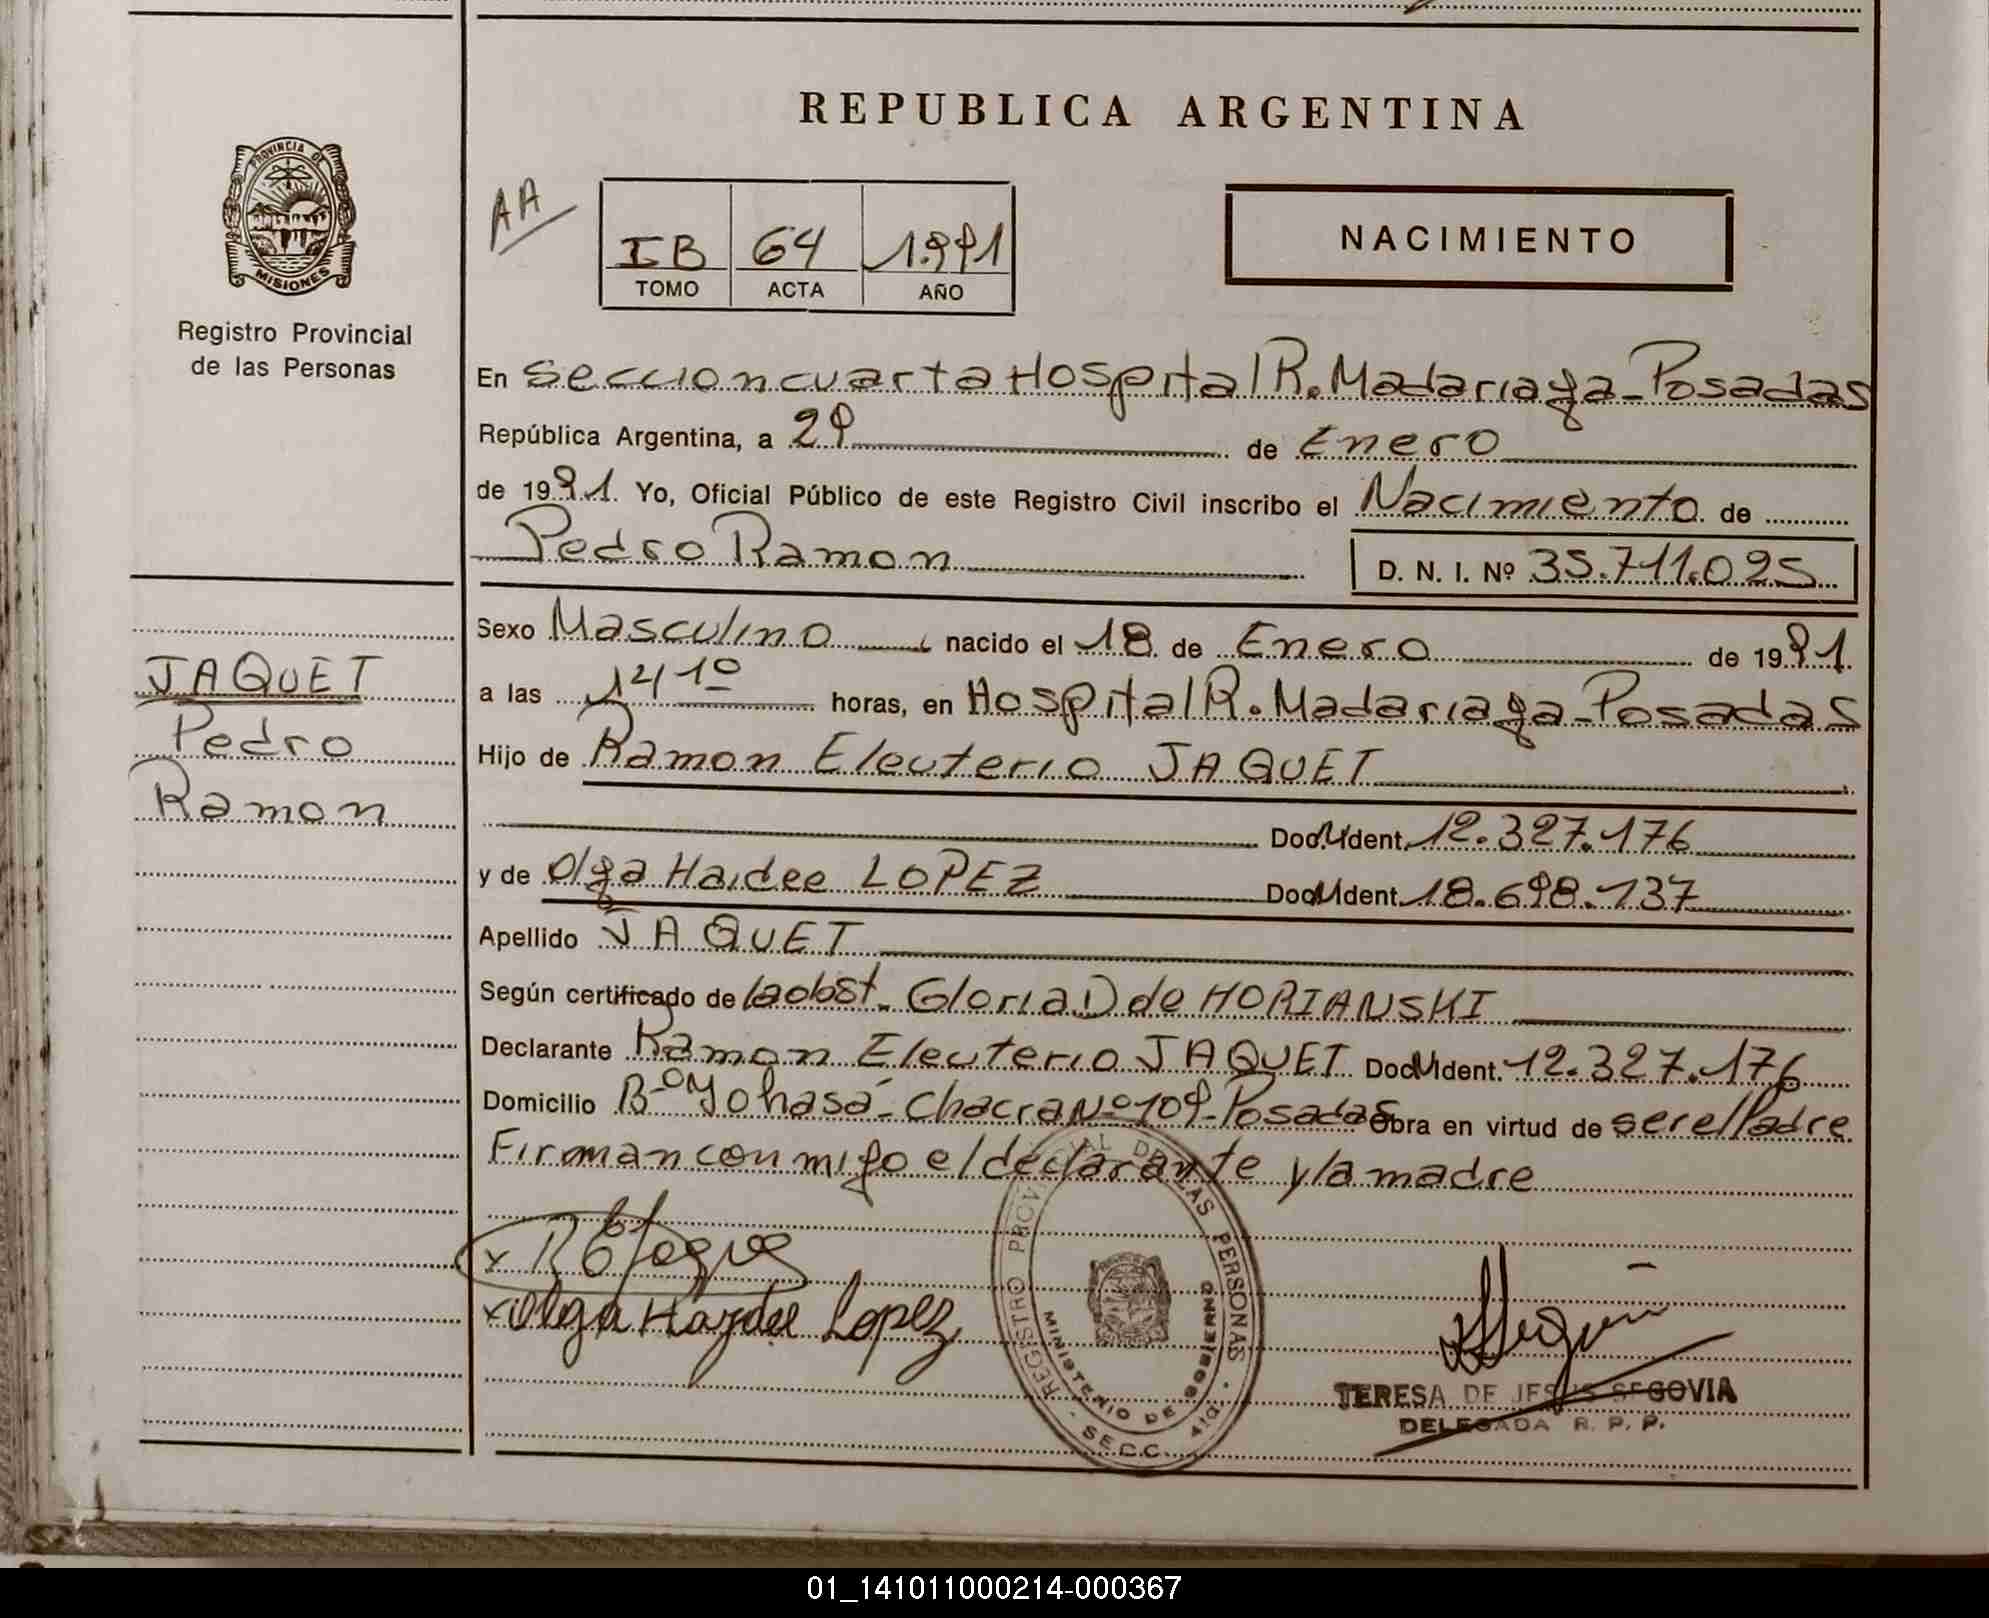 REPUBLICA ARGENTINA
PROVINCIA DE
MISIONES
Registro Provincial
de las Personas
AA
IB 64 1.991
TOMO ACTA AÑO
NACIMIENTO
En Seccion cuarta Hospital R. Madariaga - Posadas
República Argentina, a 29 de Enero
de 1991. Yo, Oficial Público de este Registro Civil inscribo el Nacimiento de
Pedro Ramon D. N. I. Nº 35.711.025
Sexo Masculino nacido el 18 de Enero de 1991.
a las 14 10 horas, en Hospital R. Madariaga - Posadas
Hijo de Ramon Eleuterio JAQUET
Doc. Ident. 12.327.176
y de Olga Haidee LOPEZ Doc. Ident. 18.698.137
Apellido JAQUET
Según certificado de la obst. Gloria D de HORIANSKI
Declarante Ramon Eleuterio JAQUET Doc. Ident. 12.327.176
Domicilio Bº Yohasá - Chacra Nº 109 - Posadas Obra en virtud de ser el Padre
Firman conmigo el declarante y la madre
JAQUET
Pedro
Ramon
x Olga Haydee Lopez
REGISTRO PROVINCIAL DE LAS PERSONAS
MINISTERIO DE GOBIERNO
SECC. 4ta.
TERESA DE JESUS SEGOVIA
DELEGADA R. P. P.
01_141011000214-000367